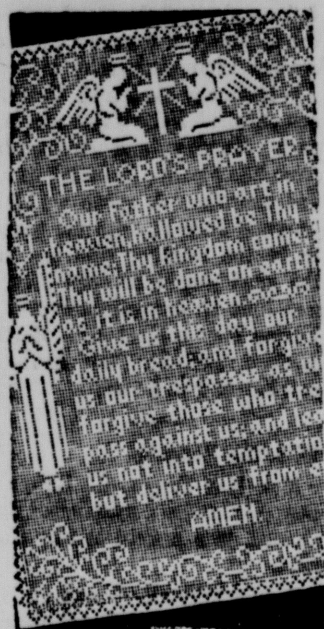 THE LORD'S PRAYER
Our Father who art in
heaven, hallowed be Thy
name; Thy kingdom come;
Thy will be done on earth
as it is in heaven.
Give us this day our
daily bread; and forgive
us our trespasses as
forgive those who tres
pass against us; and lea
us not into temptatio
but deliver us from
AMEN.